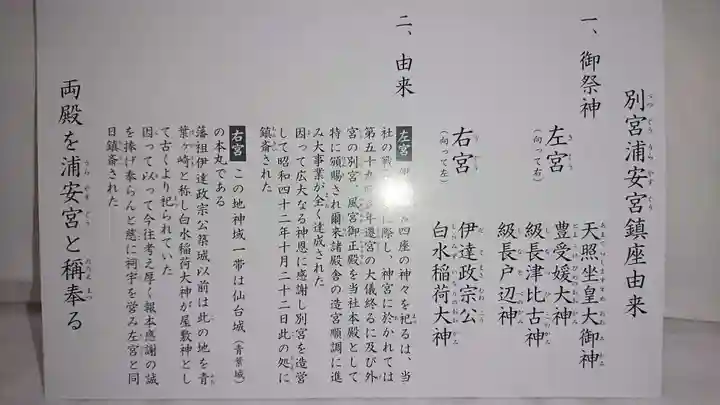 別宮浦安宮鎮座由来
一、御祭神
左宮(向って右)
天照坐皇大御神
豊受媛大神
級長津比古神
級長戸辺神
右宮(向って左)
伊達政宗公
白水稲荷大神
二、由来
左宮 四座の神々を祀るは、当
社の 際し、神宮に於かれては
第五十九 年遷宮の大儀終るに及び外
宮の別宮、風宮御正殿を当社本殿として
特に頒賜され爾来諸殿舎の造宮順調に進
み大事業が全く達成された
因って広大なる神恩に感謝し別宮を造営
して昭和四十二年十月二十二日此の処に
鎮斎された
右宮 この地神域一帯は仙台城(青葉城)
の本丸である
藩祖伊達政宗公築城以前は此の地を青
葉ヶ崎と称し白水稲荷大神が屋敷神とし
て古くより祀られていた
因って以って今往考之厚く報本感謝の誠
を捧げ奉らんと慈に祠宇を営み左宮と同
日鎮斎された
両殿を浦安宮と稱奉る